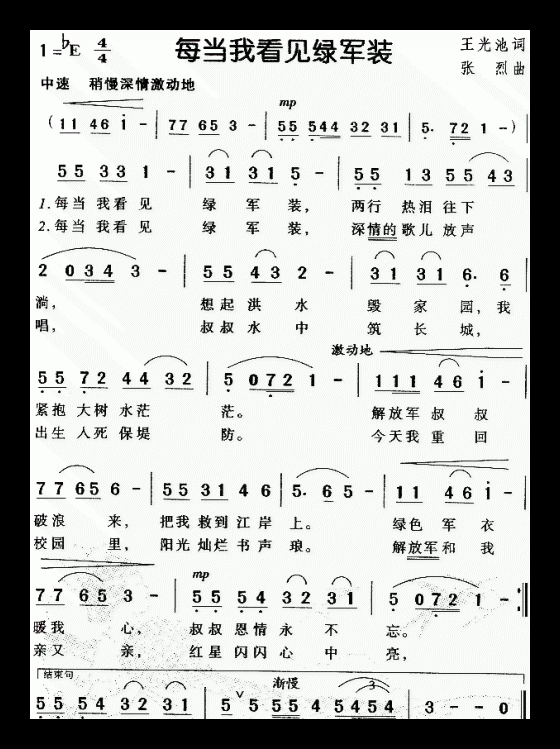 1=♭E 4/4 每当我看见绿军装 王光池词
张 烈曲
中速 稍慢深情激动地
mp
(11 46 i - | 77 65 3 - | 55 544 32 31 | 5. 72 1 -) |
55 33 1 - | 31 31 5 - | 55 13 55 43
1.每当 我看 见 绿 军 装, 两行 热泪 往下
2.每当 我看 见 绿 军 装, 深情的 歌儿 放声
2 034 3 - | 55 43 2 - | 31 31 6. 6
淌, 想起 洪 水 毁 家 园,我
唱, 叔叔 水 中 筑 长 城,
激动地
55 72 44 32 | 5 072 1 - | 11 11 46 i -
紧抱 大树 水茫 茫。 解放军 叔 叔
出生 入死 保堤 防。 今天我 重 回
77 65 6 - | 55 31 4 6 | 5. 6 5 - | 11 46 i -
破浪 来, 把我 救到 江岸 上。 绿色 军 衣
校园 里, 阳光 灿烂 书声 琅。 解放军和 我
mp
77 65 3 - | 55 54 32 31 | 5 072 1 - :||
暖我 心, 叔叔 恩情 永 不 忘。
亲又 亲, 红星 闪闪 心 中 亮,
结束句 渐慢 3
55 54 32 31 | 55 54 45 54 | 3 - - 0 ||